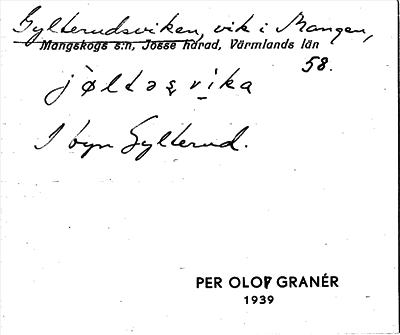 Gylterudsviken, vik i Mangen,
Mangskogs s:n, Jösse härad, Värmlands län
58.
jøltəs vika
I byn Gylterud.
PER OLOF GRANÉR
1939